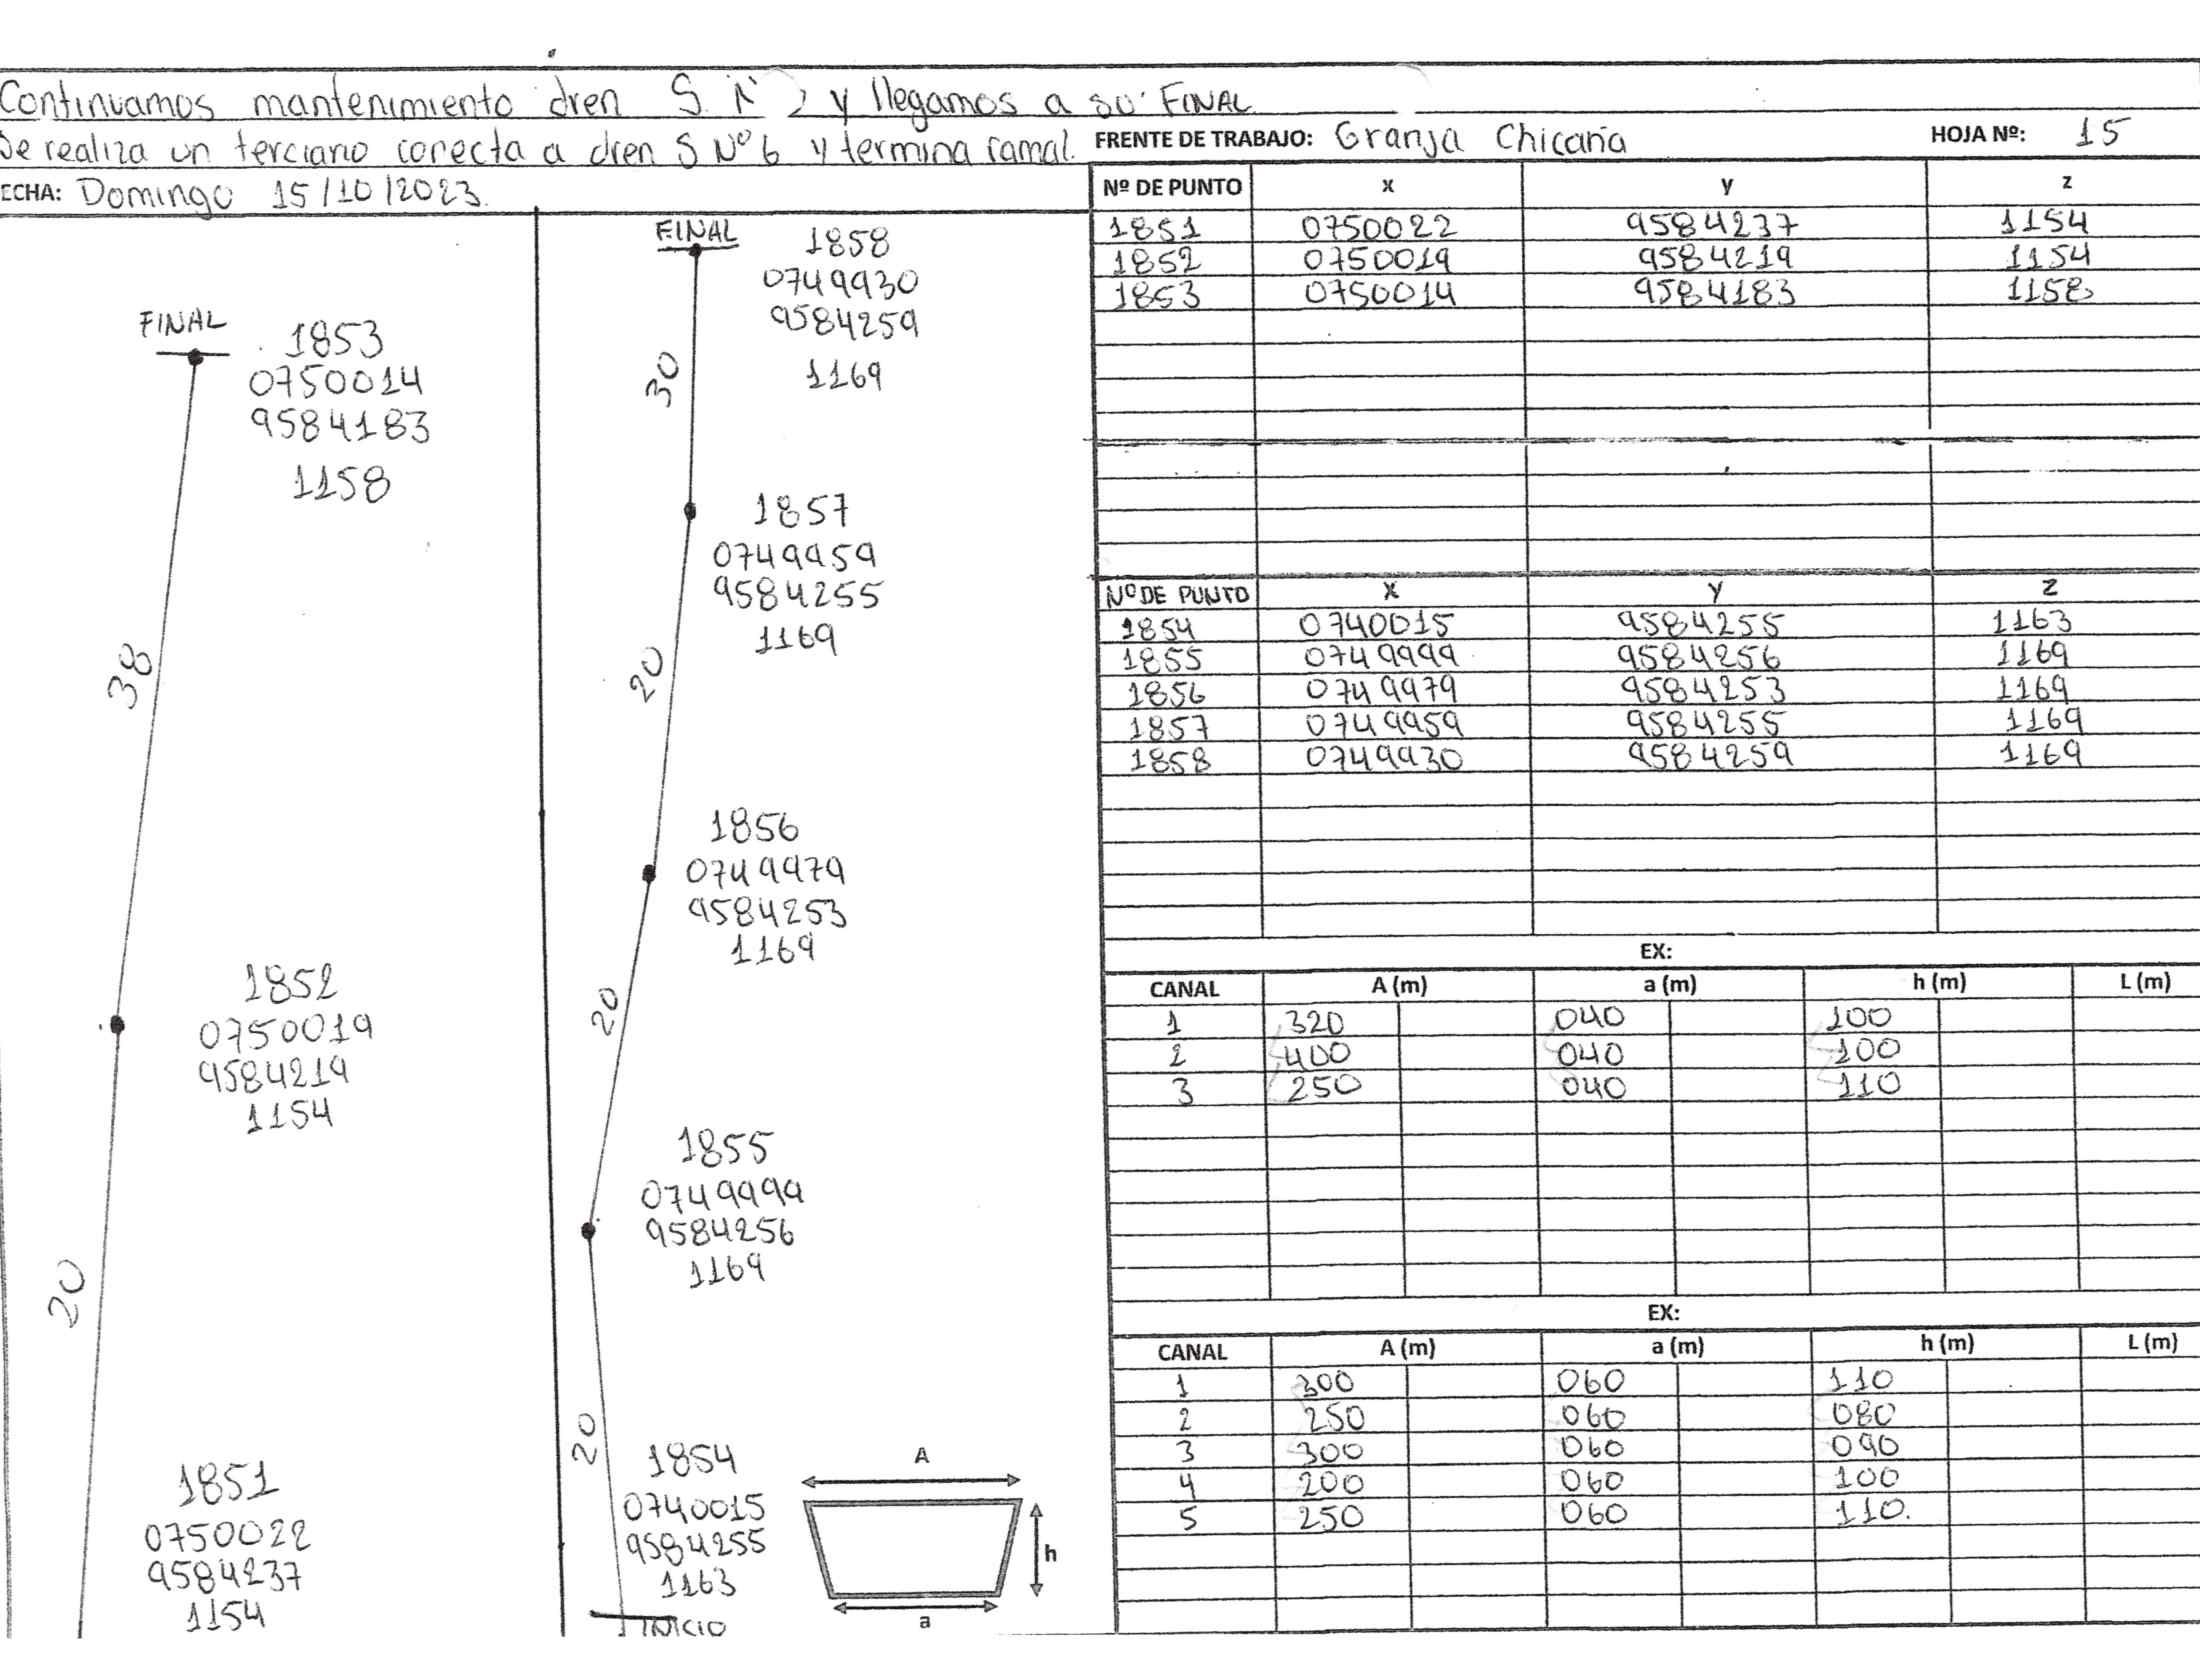 Continuamos mantenimiento dren S. N° 2 y llegamos a su FINAL
Se realiza un terciario conecta a dren S Nº 6 y termina ramal.
FRENTE DE TRABAJO: Granja Chicaña
HOJA Nº: 15
ECHA: Domingo 15/10/2023.
FINAL
1853
0750014
9584183
1158
38
1852
0750019
9584219
1154
20
1851
0750022
9584237
1154
FINAL
1858
0749930
9584259
1169
30
1857
0749959
9584255
1169
20
1856
0749979
9584253
1169
20
1855
0749999
9584256
1169
20
1854
0740015
9584255
1163
INICIO
A
h
a
Nº DE PUNTO x y z
1851 0750022 9584237 1154
1852 0750019 9584219 1154
1853 0750014 9584183 1158
Nº DE PUNTO X Y Z
1854 0740015 9584255 1163
1855 0749999 9584256 1169
1856 0749979 9584253 1169
1857 0749959 9584255 1169
1858 0749930 9584259 1169
EX:
CANAL A (m) a (m) h (m) L (m)
1 320 040 100
2 400 040 100
3 250 040 110
EX:
CANAL A (m) a (m) h (m) L (m)
1 300 060 110
2 250 060 080
3 300 060 090
4 200 060 100
5 250 060 110.